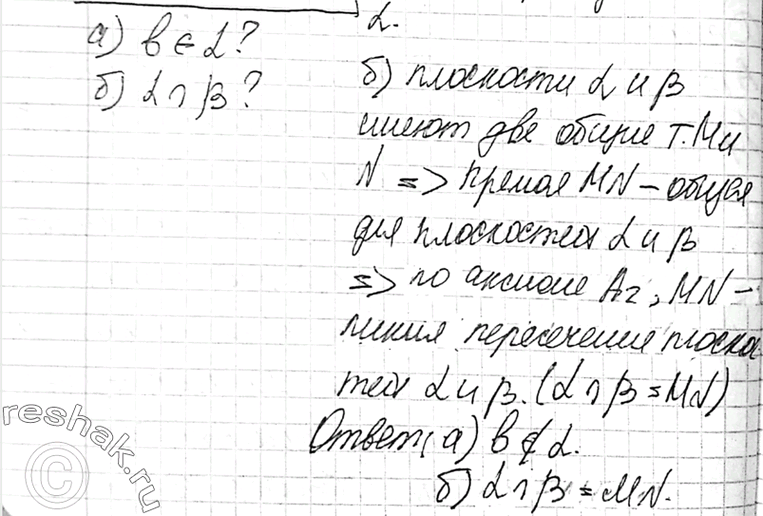 α.
а) b ∈ α?
б) α ∩ β?
б) плоскости α и β
имеют две общие т. M и
N => прямая MN – общая
для плоскостей α и β
=> по аксиоме A₂, MN –
линия пересечения плоскос
тей α и β. (α ∩ β = MN)
Ответ: а) b ∉ α.
б) α ∩ β = MN.
reshak.ru